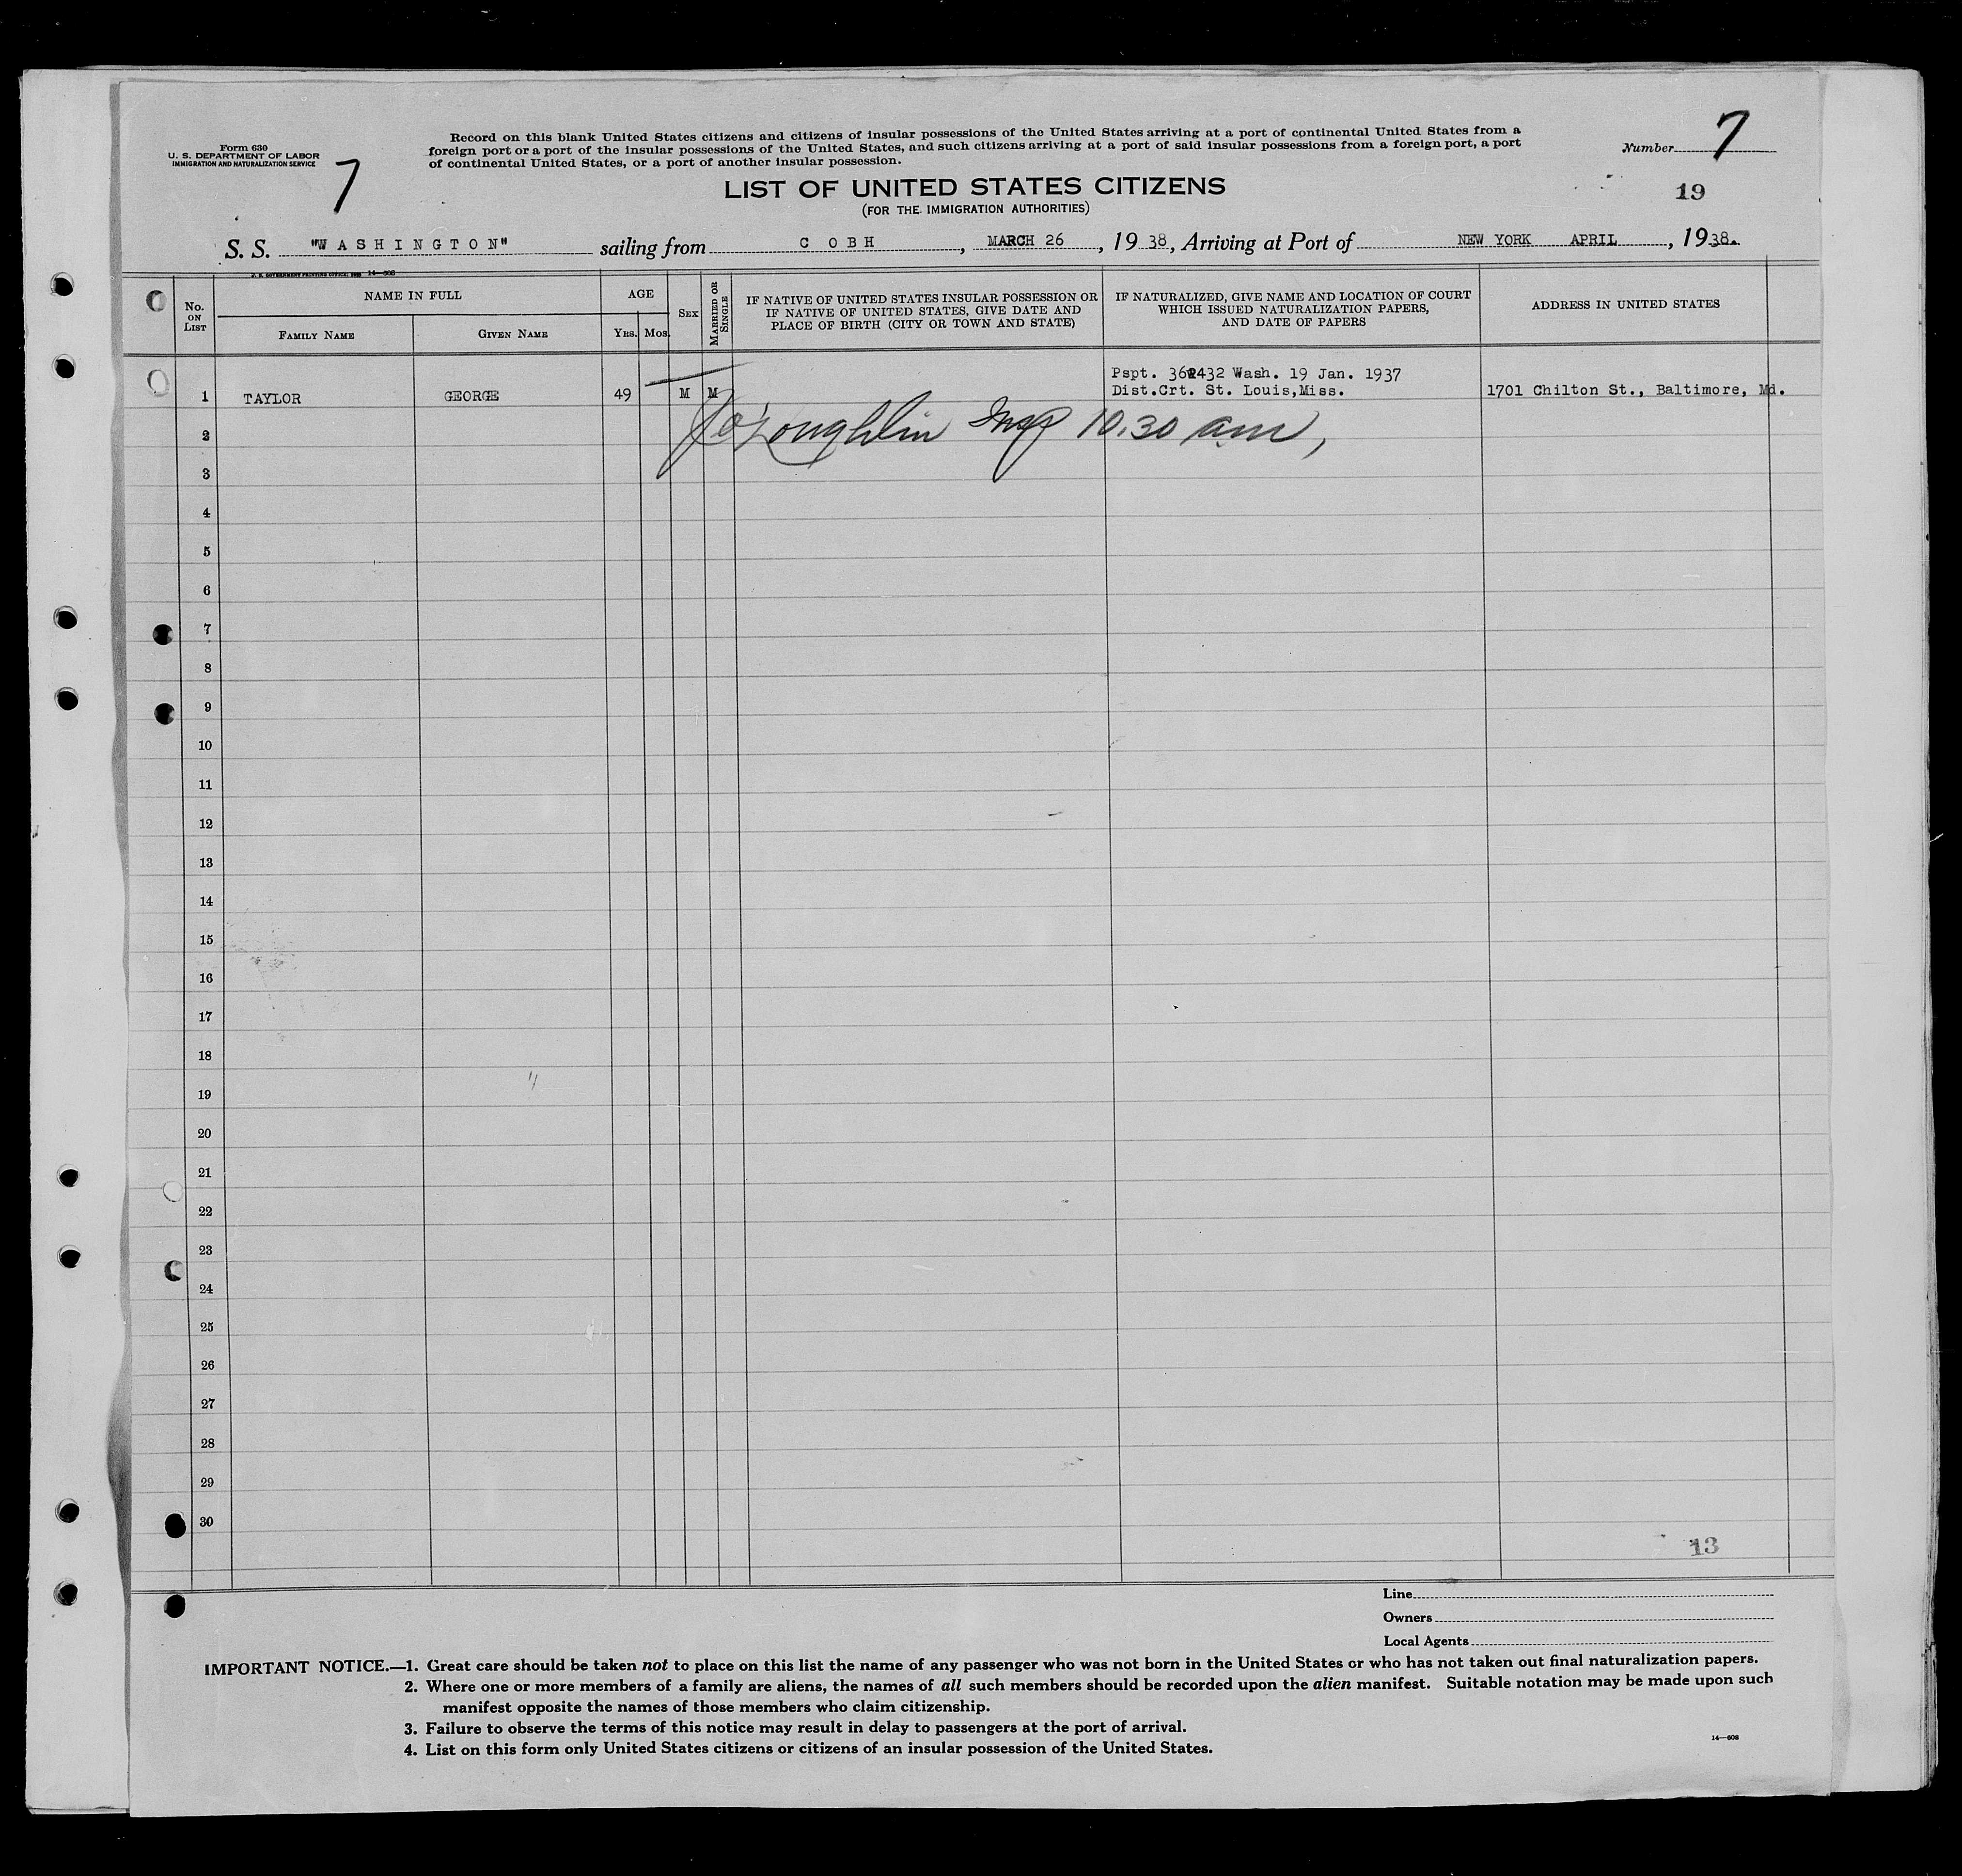 Form 630
U. S. DEPARTMENT OF LABOR
IMMIGRATION AND NATURALIZATION SERVICE
7
Record on this blank United States citizens and citizens of insular possessions of the United States arriving at a port of continental United States from a
foreign port or a port of the insular possessions of the United States, and such citizens arriving at a port of said insular possessions from a foreign port, a port
of continental United States, or a port of another insular possession.
Number 7
LIST OF UNITED STATES CITIZENS
(FOR THE IMMIGRATION AUTHORITIES)
19
S. S. "WASHINGTON" sailing from COBH, MARCH 26, 1938, Arriving at Port of NEW YORK APRIL, 1938.
U. S. GOVERNMENT PRINTING OFFICE: 14—608
No. ON LIST
NAME IN FULL
FAMILY NAME
GIVEN NAME
AGE
YRS. MOS.
SEX
MARRIED OR SINGLE
IF NATIVE OF UNITED STATES INSULAR POSSESSION OR
IF NATIVE OF UNITED STATES, GIVE DATE AND
PLACE OF BIRTH (CITY OR TOWN AND STATE)
IF NATURALIZED, GIVE NAME AND LOCATION OF COURT
WHICH ISSUED NATURALIZATION PAPERS,
AND DATE OF PAPERS
ADDRESS IN UNITED STATES
Pspt. Wash. 19 Jan. 1937
1 TAYLOR GEORGE 49 M M Dist.Crt. St. Louis,Miss. 1701 Chilton St., Baltimore, Md.
2 O'Loughlin Insp 10.30 am,
3
4
5
6
7
8
9
10
11
12
13
14
15
16
17
18
19
20
21
22
23
24
25
26
27
28
29
30
13
Line
Owners
Local Agents
IMPORTANT NOTICE.—1. Great care should be taken not to place on this list the name of any passenger who was not born in the United States or who has not taken out final naturalization papers.
2. Where one or more members of a family are aliens, the names of all such members should be recorded upon the alien manifest. Suitable notation may be made upon such
manifest opposite the names of those members who claim citizenship.
3. Failure to observe the terms of this notice may result in delay to passengers at the port of arrival.
4. List on this form only United States citizens or citizens of an insular possession of the United States.
14—608